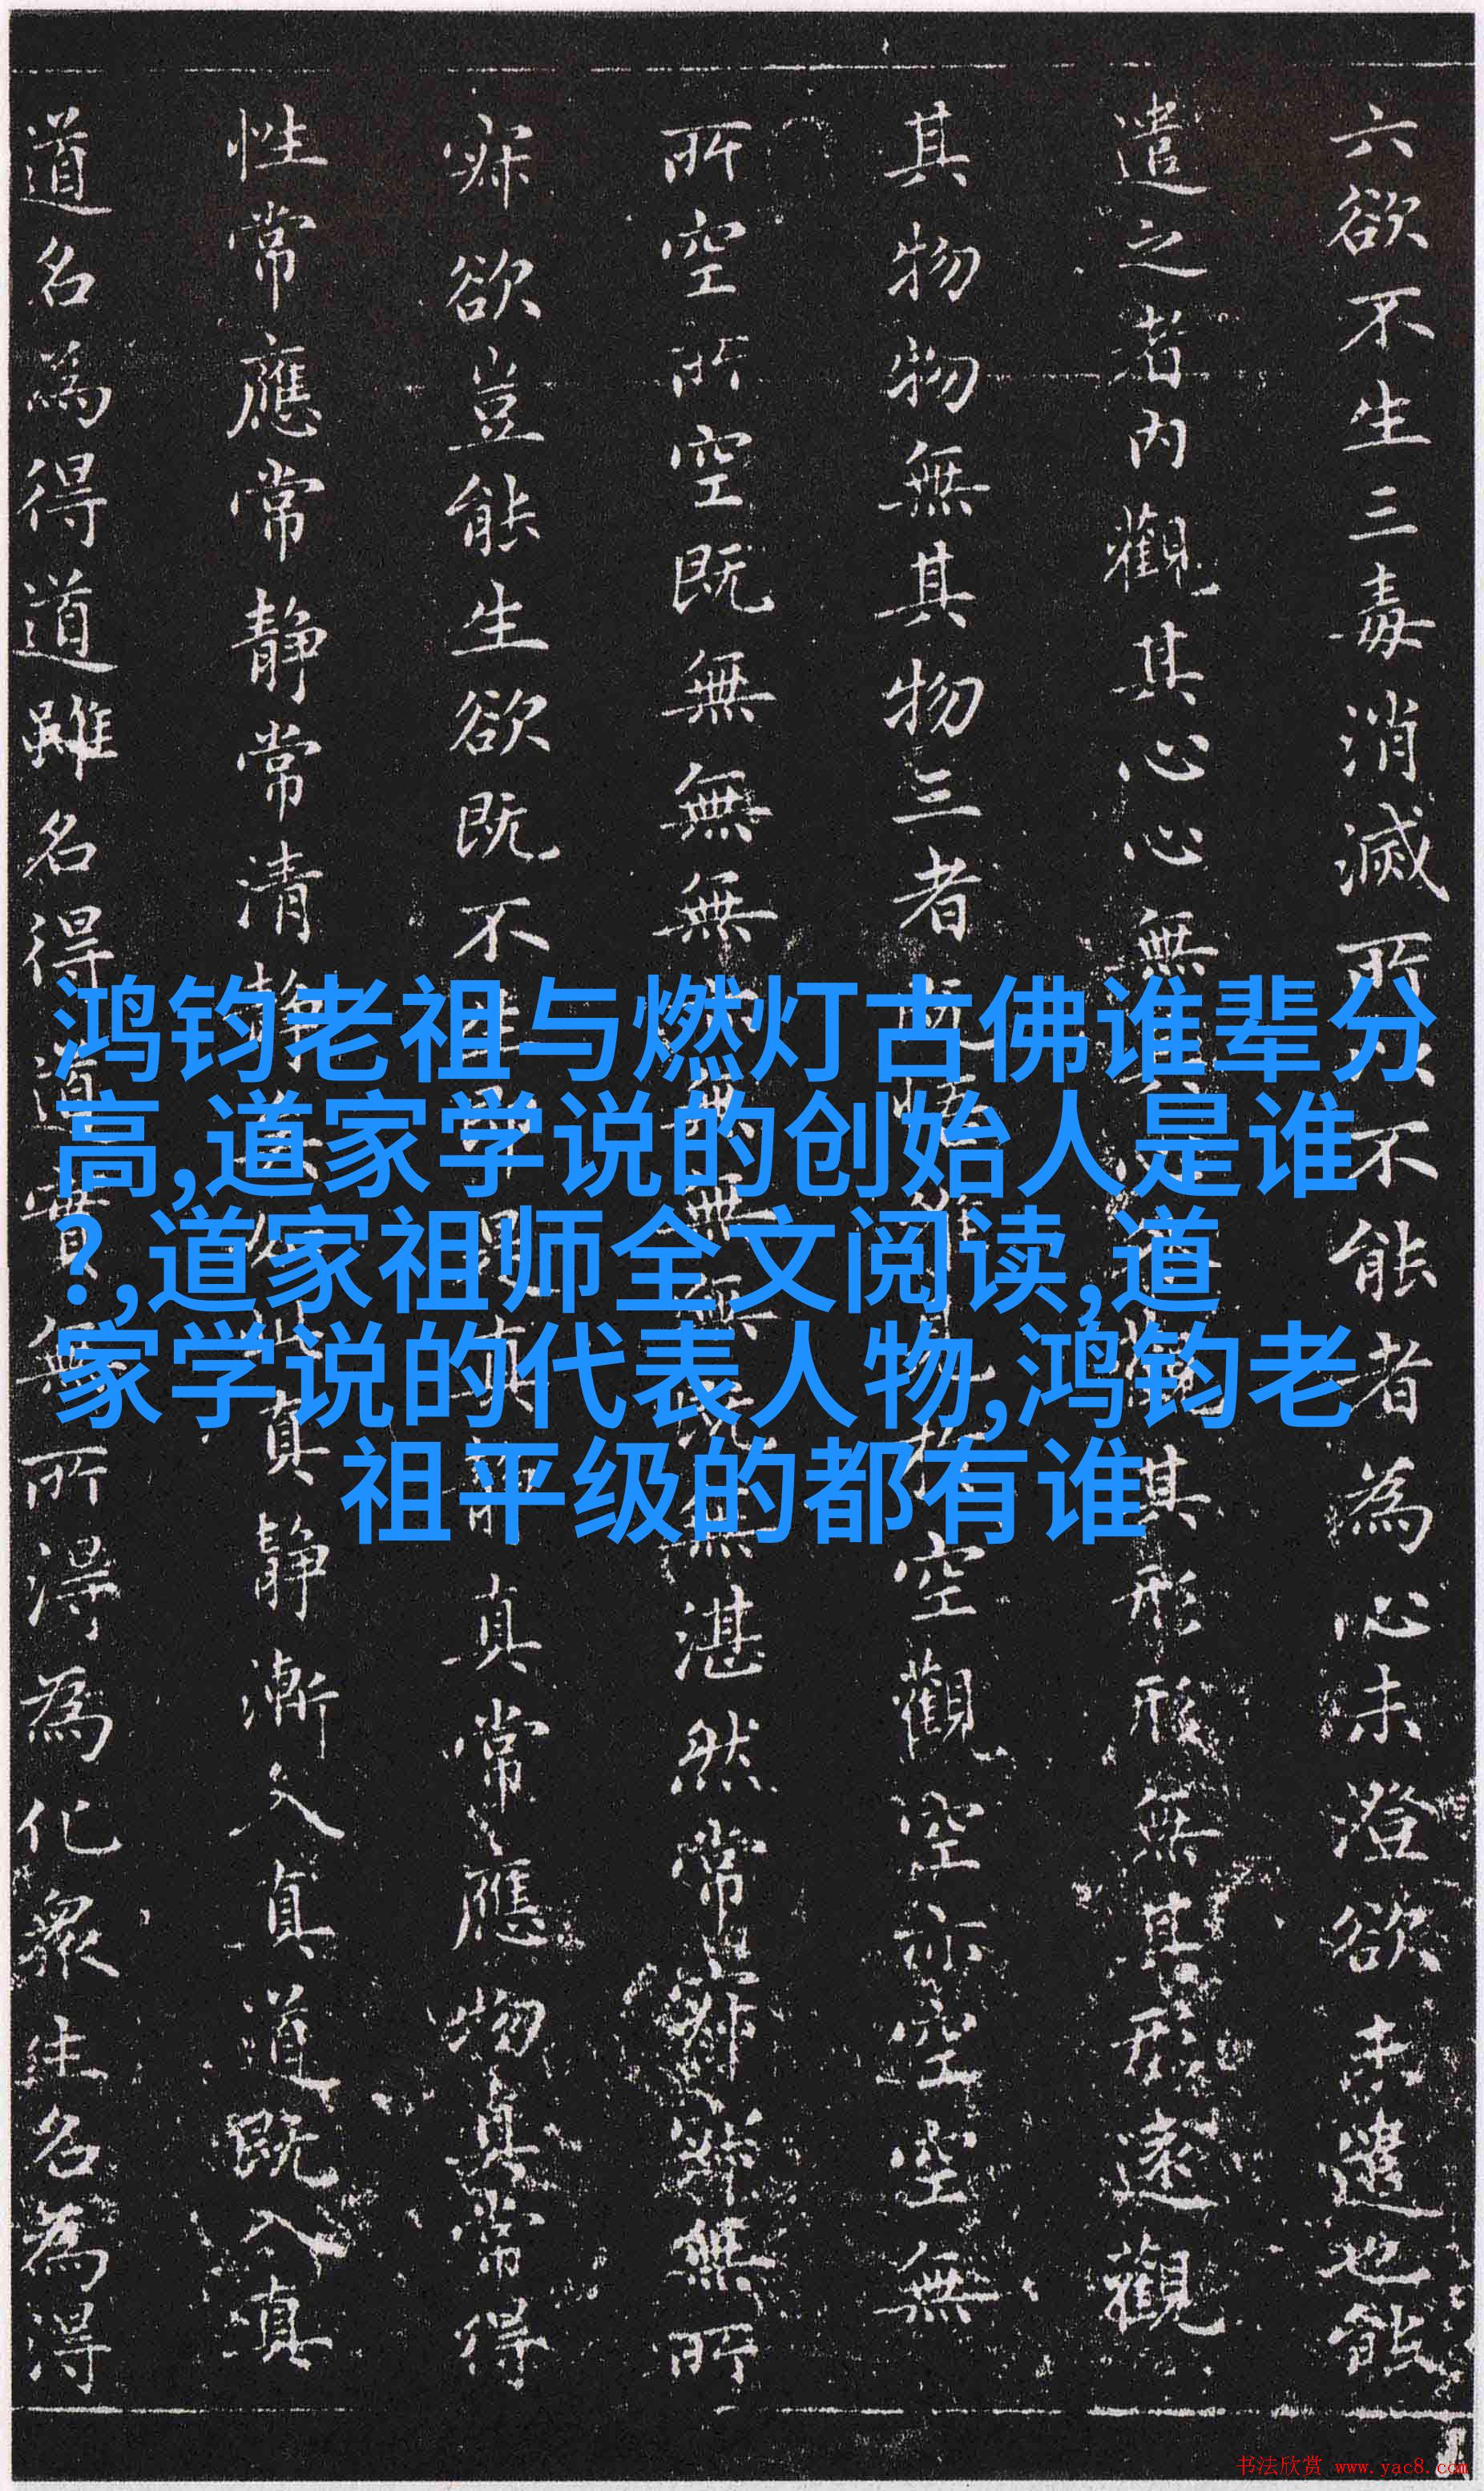 六欲不生三毒消滅所以不能者為心未澄欲未遣也能
遣之者內觀其心心無其心外觀其形形無其形遠觀
其物物無其物三者既悟唯見於空觀空亦空空無
所空所空既無無無亦無無無既無湛然常寂寂無所
寂欲豈能生欲既不生即是真静真常應物真常得
性常應常静常清静矣如此真静漸入真道既入真
道名為得道雖名得道實無所得為化眾生名為得
鸿钧老祖与燃灯古佛谁辈分
高,道家学说的创始人是谁
?,道家祖师全文阅读,道
家学说的代表人物,鸿钧老
祖平级的都有谁
书法欣赏 www.yac8.com